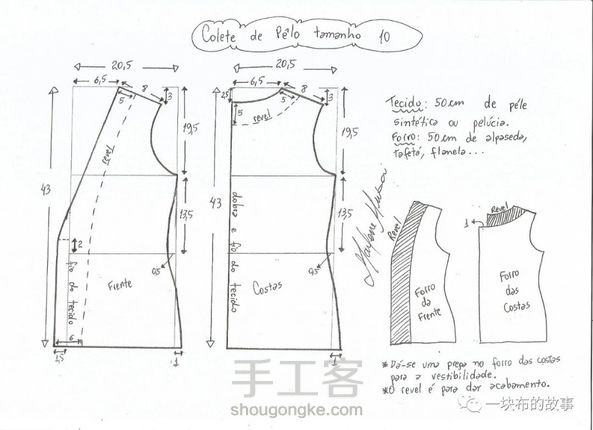 Colete de Pêlo tamanho 10
20,5
6,5
8
5
3
revel
19,5
43
13,5
2
0,5
fio do tecido
Frente
6
1,5
1
20,5
6,5
8
2,5
5
5
3
revel
19,5
43
13,5
dobra e fio do tecido
0,5
Costas
1
Tecido: 50cm de pêle
sintética ou pelúcia.
Forro: 50cm de alpaseda,
tafetá, flanela...
Marlene Mukai
Revel
Forro
da
Frente
Revel
1
Forro
das
Costas
*Dá-se uma prega no forro das costas
para a vestibilidade.
*O revel é para dar acabamento.
手工客
shougongke.com
一块布的故事